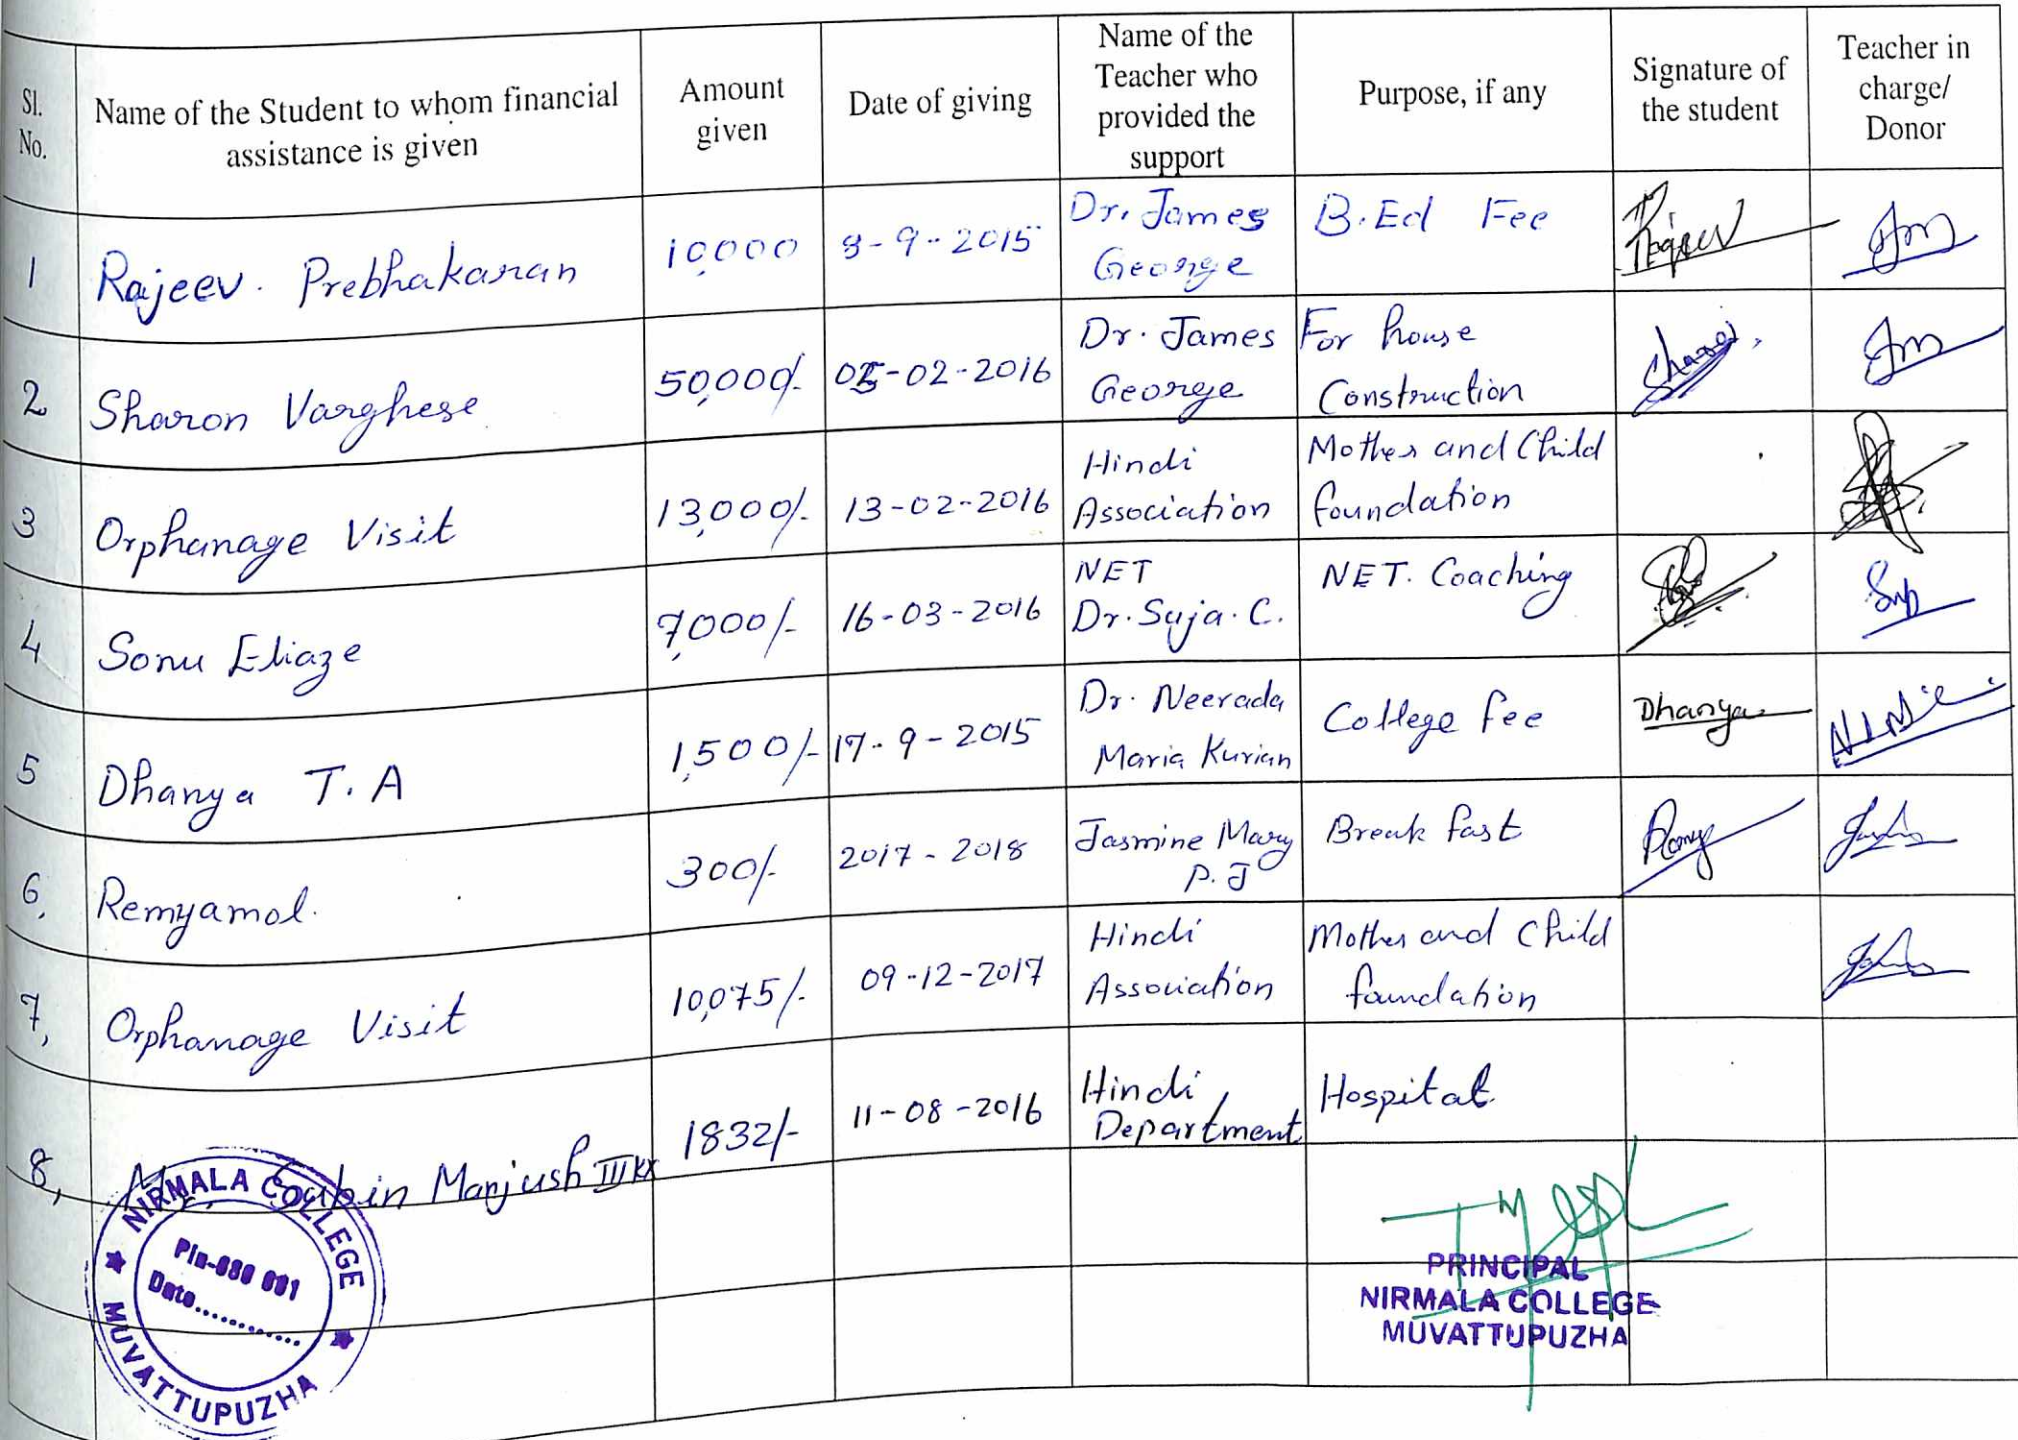 Sl. No.
Name of the Student to whom financial assistance is given
Amount given
Date of giving
Name of the Teacher who provided the support
Purpose, if any
Signature of the student
Teacher in charge/ Donor
1 Rajeev. Prebhakaran 10,000 8-9-2015 Dr. James George B.Ed Fee Rajeev
2 Sharon Varghese 50,000/- 05-02-2016 Dr. James George For house Construction Sharon
3 Orphanage Visit 13,000/- 13-02-2016 Hindi Association Mother and Child foundation
4 Sonu Eliaze 7,000/- 16-03-2016 NET Dr. Suja. C. NET. Coaching
5 Dhanya T. A 1,500/- 17-9-2015 Dr. Neerada Maria Kurian College fee Dhanya
6, Remyamol. 300/- 2017-2018 Jasmine Mary P. J Break fast
7, Orphanage Visit 10,075/- 09-12-2017 Hindi Association Mother and Child foundation
8, Subin Manjush III 1832/- 11-08-2016 Hindi Department Hospital
NIRMALA COLLEGE
Pin-686 661
Date............
MUVATTUPUZHA
PRINCIPAL
NIRMALA COLLEGE
MUVATTUPUZHA